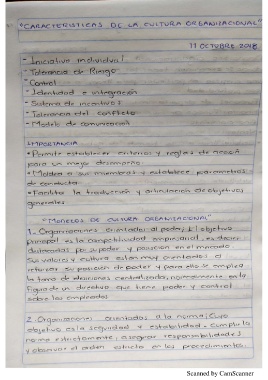 "CARACTERISTICAS DE LA CULTURA ORGANIZACIONAL"
11 OCTUBRE 2018
- Iniciativa individual
- Tolerancia de Riesgo
- Control
- Identidad e integración
- Sistema de incentivos
- Tolerancia del conflicto
- Modelo de comunicación
IMPORTANCIA
• Permite establecer criterios y reglas de acción
para un mejor desempeño
• Moldea a sus miembros y establece parametros
de conducta
• Facilita la traducción y articulación de objetivos
generales
"MODELOS DE CULTURA ORGANIZACIONAL"
1.- Organizaciones orientadas al poder; el objetivo
principal es la competitividad empresarial, es decir
por el poder y posición en el mercado
Sus valores y cultura están muy orientados a
reforzar su posición de poder y para ello se emplea
la toma de decisiones centralizada, normalmente en la
figura de un directivo que tiene poder y control
sobre los empleados.
2.- Organizaciones orientadas a la norma; Cuyo
objetivo es la seguridad y estabilidad. Cumplir la
norma estrictamente, asegurar responsabilidades
y observar el orden estricto en los procedimientos.
Scanned by CamScanner